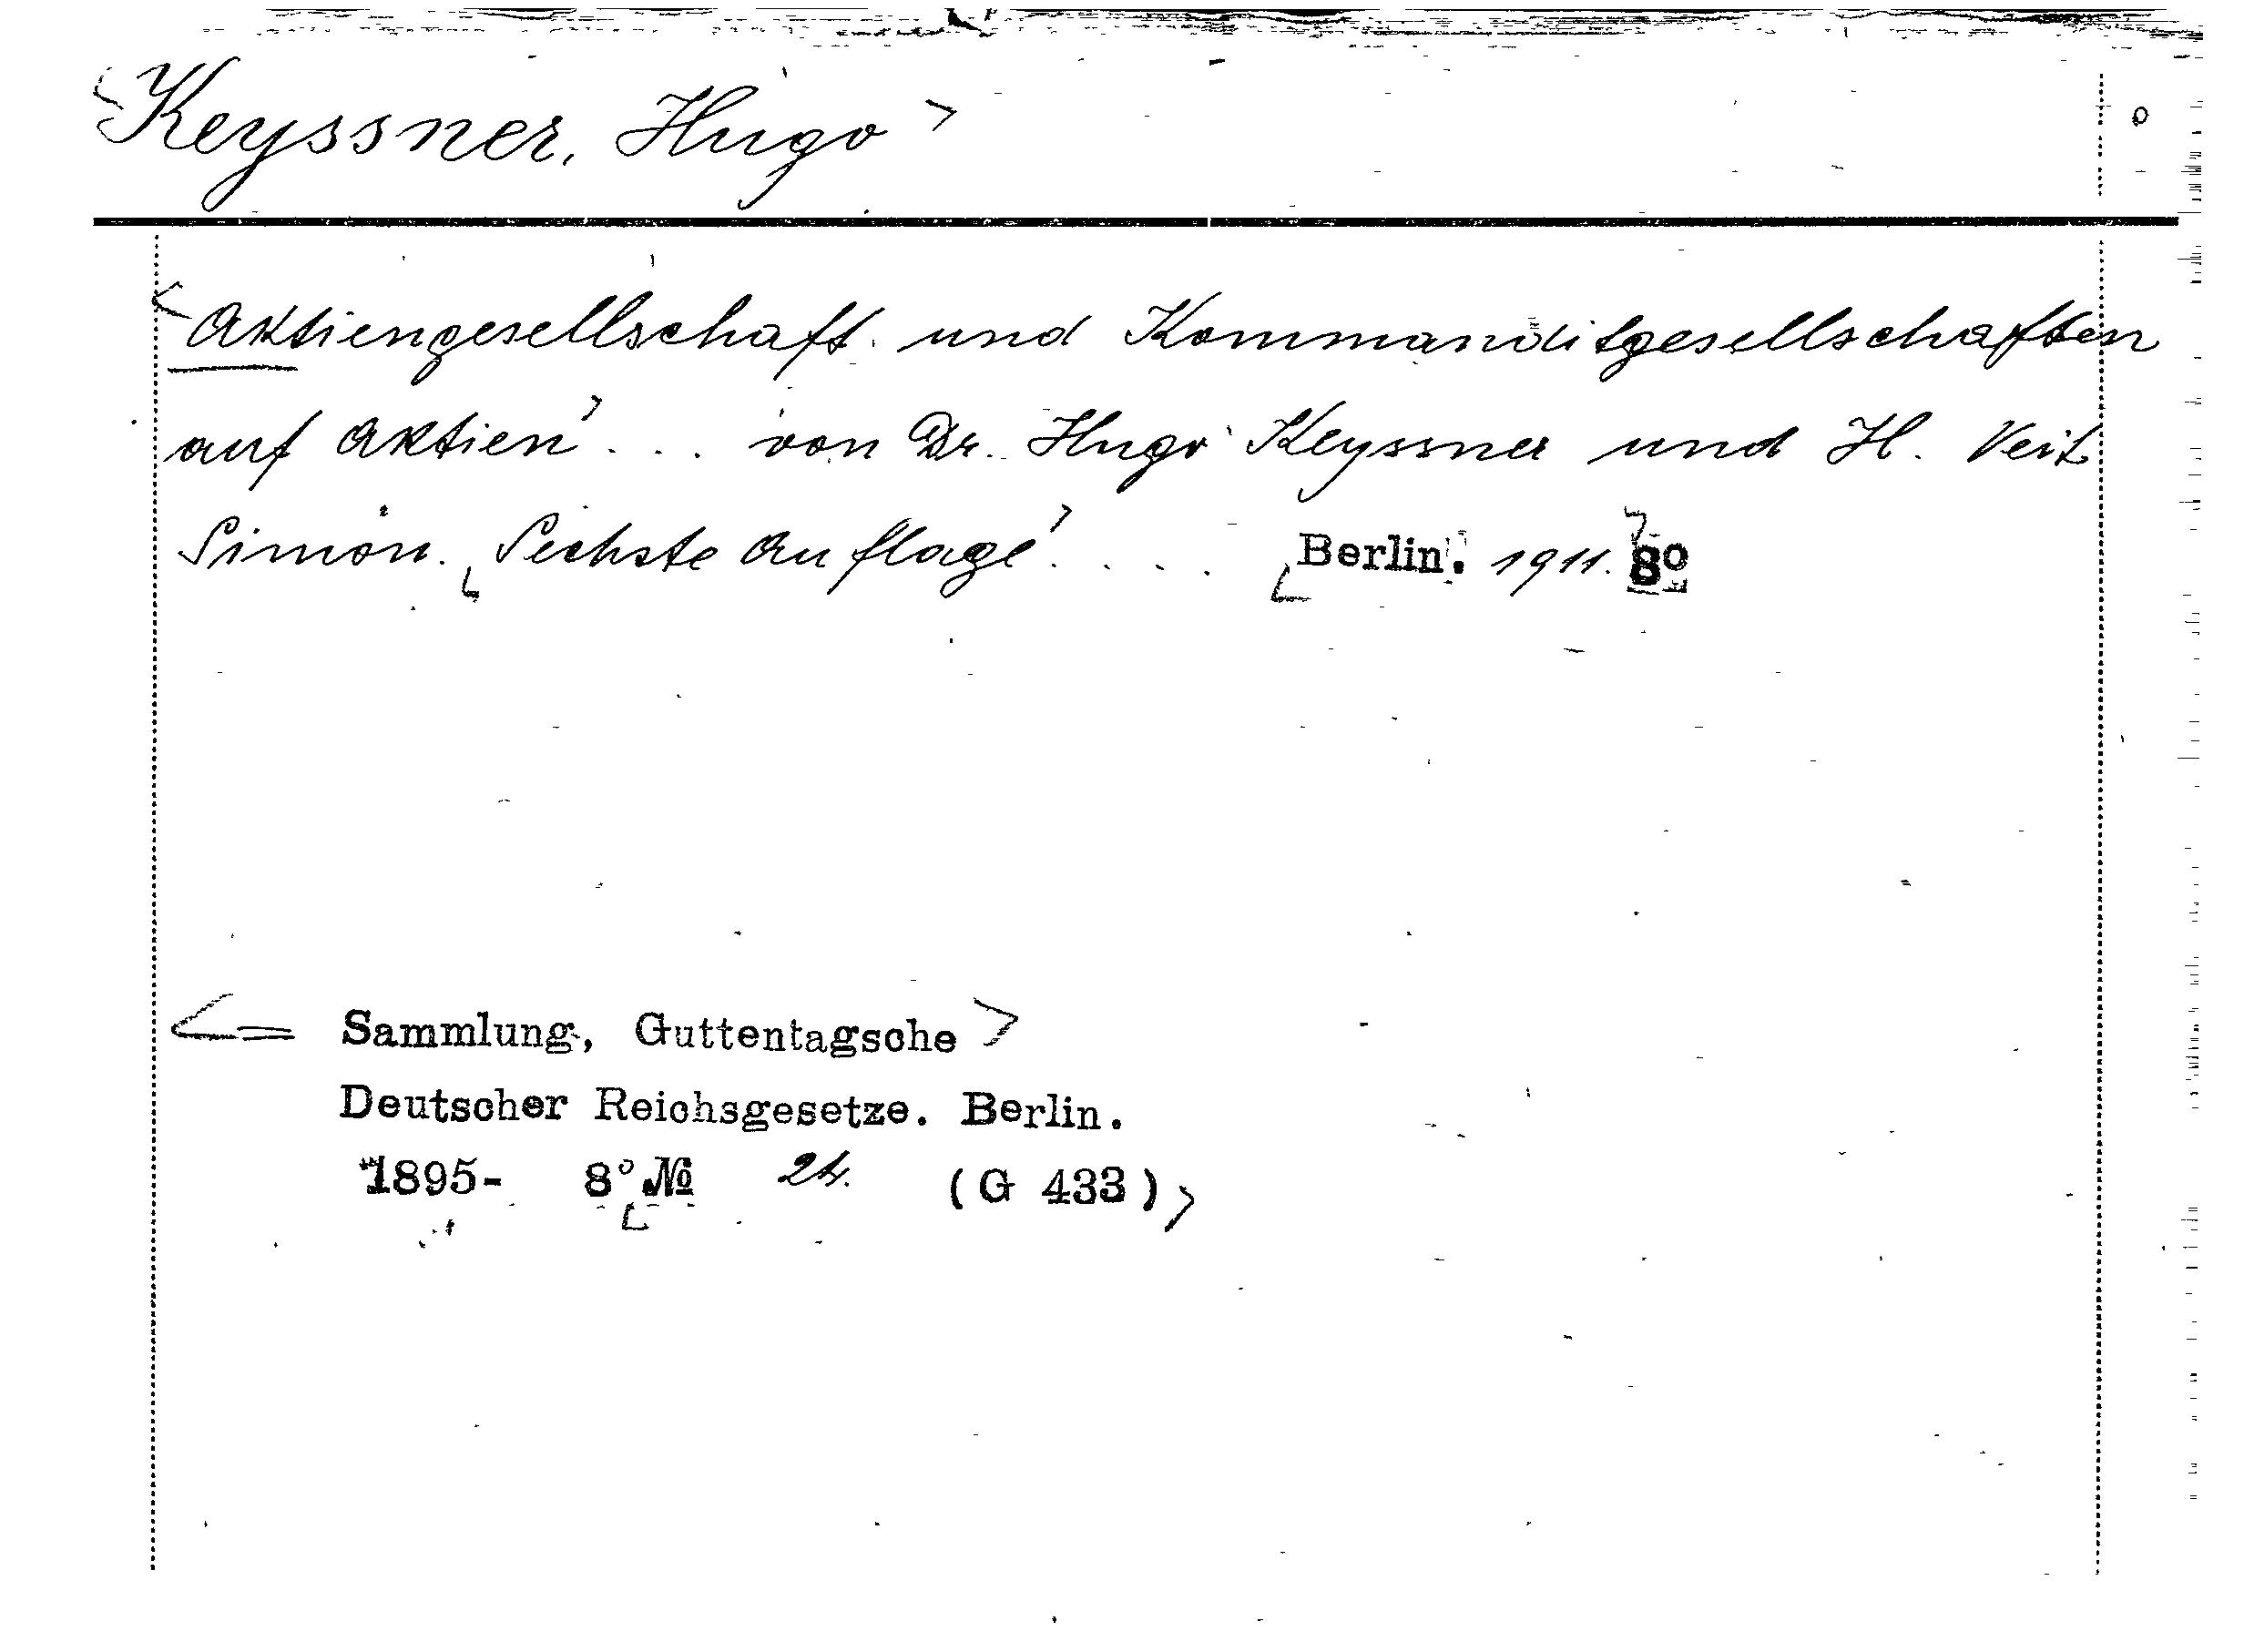 <Keyssner, Hugo>
<Aktiengesellschaft und Kommanditgesellschaften
auf Aktien> ... von Dr. Hugo Keyssner und H. Veit
Simon. <Sechste Auflage> .... <Berlin. 1911.> 8º
<= Sammlung, Guttentagsche>
Deutscher Reichsgesetze. Berlin.
1895- 8º <№ 24. (G 433)>